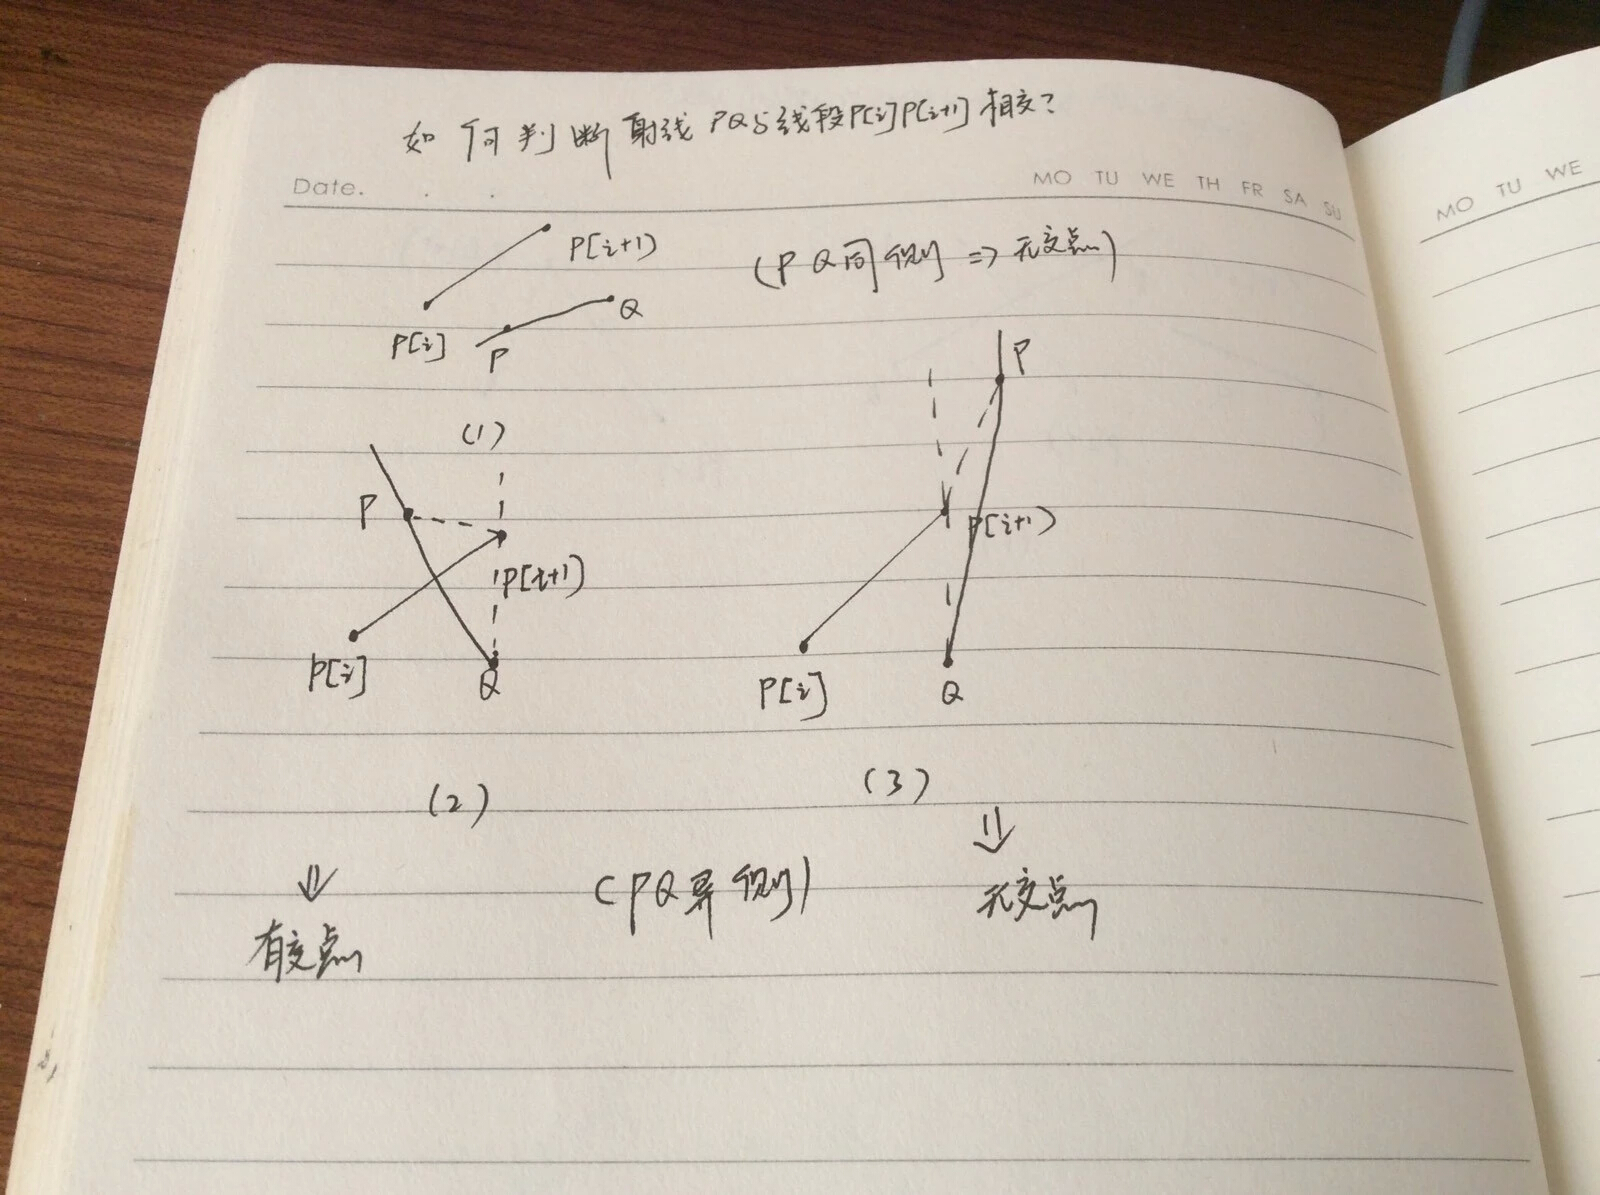 如何判断射线PQ与线段P[i]P[i+1]相交?
Date.
MO TU WE TH FR SA SU
MO TU WE
P[i+1)
(PQ同侧 => 无交点)
Q
P[i]
P
P
(1)
P
P[i+1)
P[i+1)
P[i]
Q
P[i]
Q
(2)
(3)
⇓
⇓
(PQ异侧)
有交点
无交点